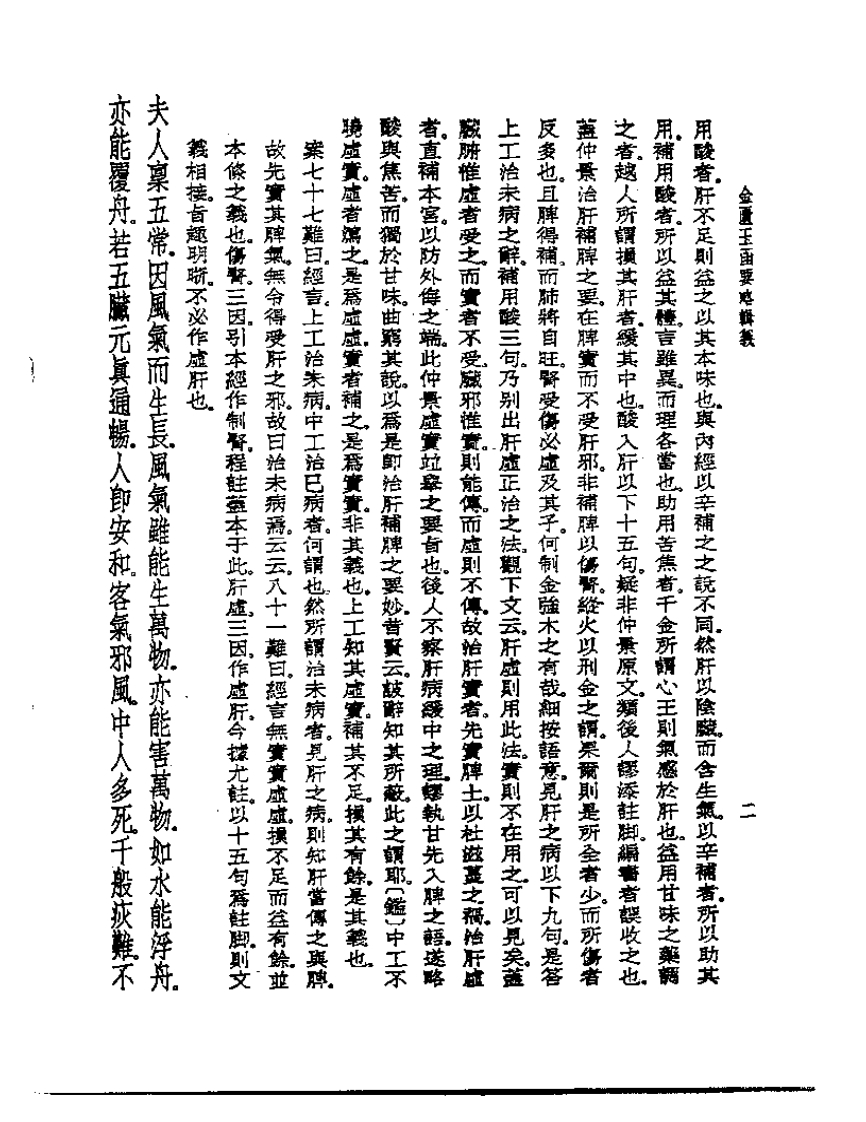 金匱玉函要略輯義
二
用酸者。肝不足則益之以其本味也。與內經以辛補之之說不同。然肝以陰臟。而含生氣。以辛補者。所以助其
用。補用酸者。所以益其體。言雖異。而理各當也。助用苦焦者。千金所謂心王則氣感於肝也。益用甘味之藥調
之者。越人所謂損其肝者。緩其中也。酸入肝以下十五句。疑非仲景原文。類後人謬添註脚。編書者誤收之也。
蓋仲景治肝補脾之要。在脾實而不受肝邪。非補脾以傷腎。縱火以刑金之謂。果爾則是所全者少。而所傷者
反多也。且脾得補而肺將自旺。腎受傷必虛及其子。何制金強木之有哉。細按語意。見肝之病以下九句。是答
上工治未病之辭。補用酸三句。乃別出肝虛正治之法。觀下文云。肝虛則用此法。實則不在用之。可以見矣。蓋
臟腑惟虛者受之。而實者不受。臟邪惟實。則能傳。而虛則不傳。故治肝實者。先實脾土。以杜滋蔓之禍。治肝虛
者。直補本宮。以防外侮之端。此仲景虛實竝舉之要旨也。後人不察肝病緩中之理。謬執甘先入脾之語。遂略
酸與焦苦。而獨於甘味曲窮其說。以爲是卽治肝補脾之要妙。昔賢云。詖辭知其所蔽。此之謂耶。〔鑑〕中工不
曉虛實。虛者瀉之。是爲虛虛。實者補之。是爲實實。非其義也。上工知其虛實。補其不足。損其有餘。是其義也。
案七十七難曰。經言。上工治未病。中工治已病者。何謂也。然所謂治未病者。見肝之病。則知肝當傳之與脾。
故先實其脾氣。無令得受肝之邪。故曰治未病焉。云云。八十一難曰。經言無實實虛虛。損不足而益有餘。並
本條之義也。傷腎。三因。引本經作制腎。程註蓋本于此。肝虛。三因。作虛肝。今據尤註。以十五句爲註脚。則文
義相接。旨趣明晰。不必作虛肝也。
夫人稟五常。因風氣而生長。風氣雖能生萬物。亦能害萬物。如水能浮舟。
亦能覆舟。若五臟元眞通暢。人卽安和。客氣邪風。中人多死。千般疢難。不